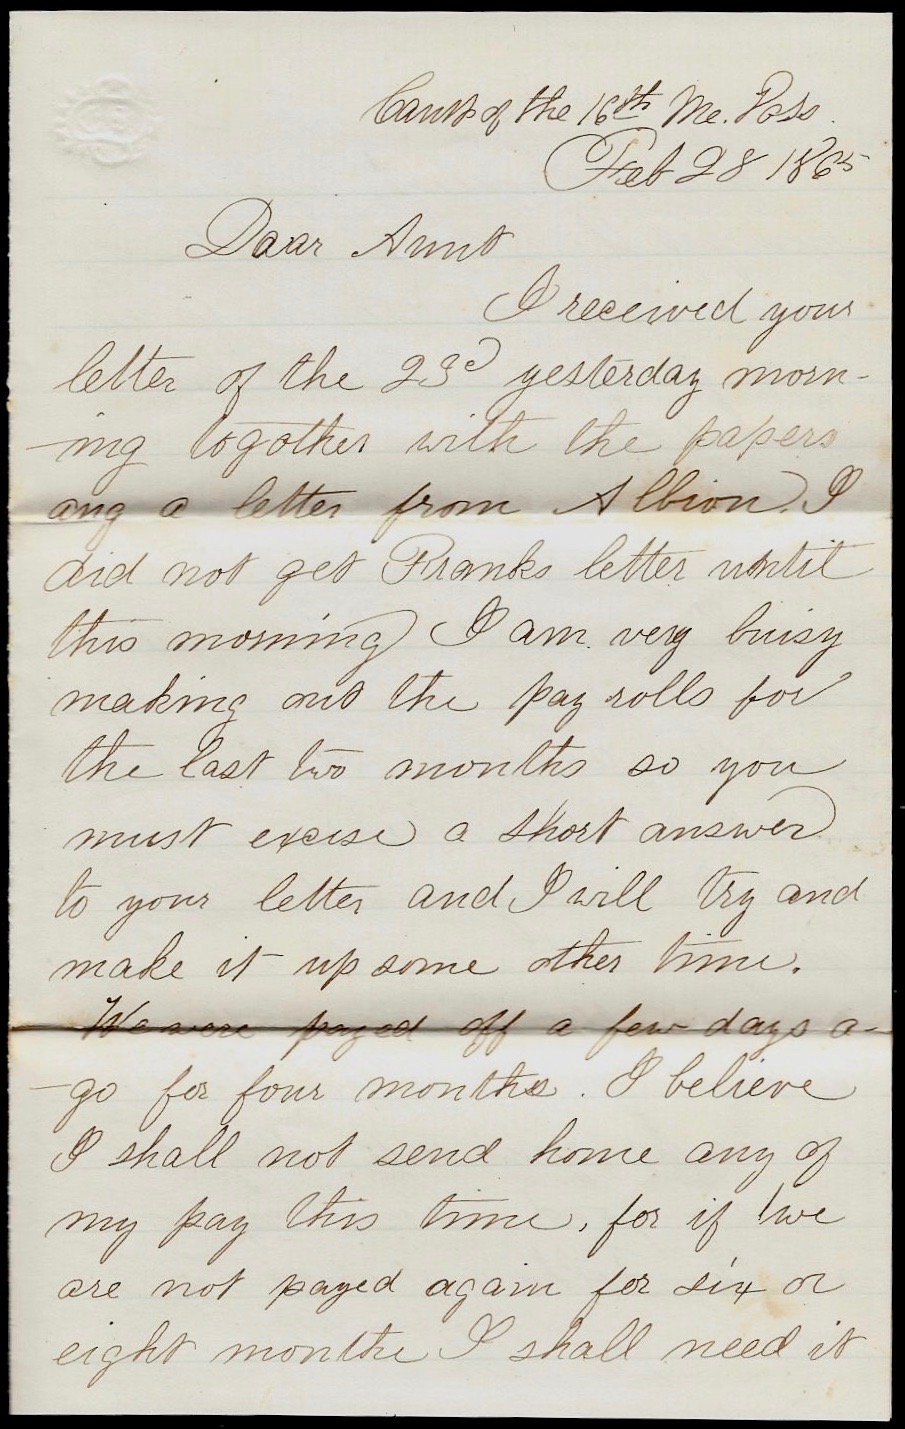 Camp of the 16th Me. Vols.
Feb 28 1865
Dear Aunt
I received your
letter of the 23d yesterday morn-
-ing together with the papers
and a letter from Albion. I
did not get Franks letter until
this morning I am very buisy
making out the pay rolls for
the last two months so you
must excise a short answer
to your letter and I will try and
make it up some other time.
We were payed off a few days a-
-go for four months. I believe
I shall not send home any of
my pay this time, for if we
are not payed again for six or
eight months I shall need it